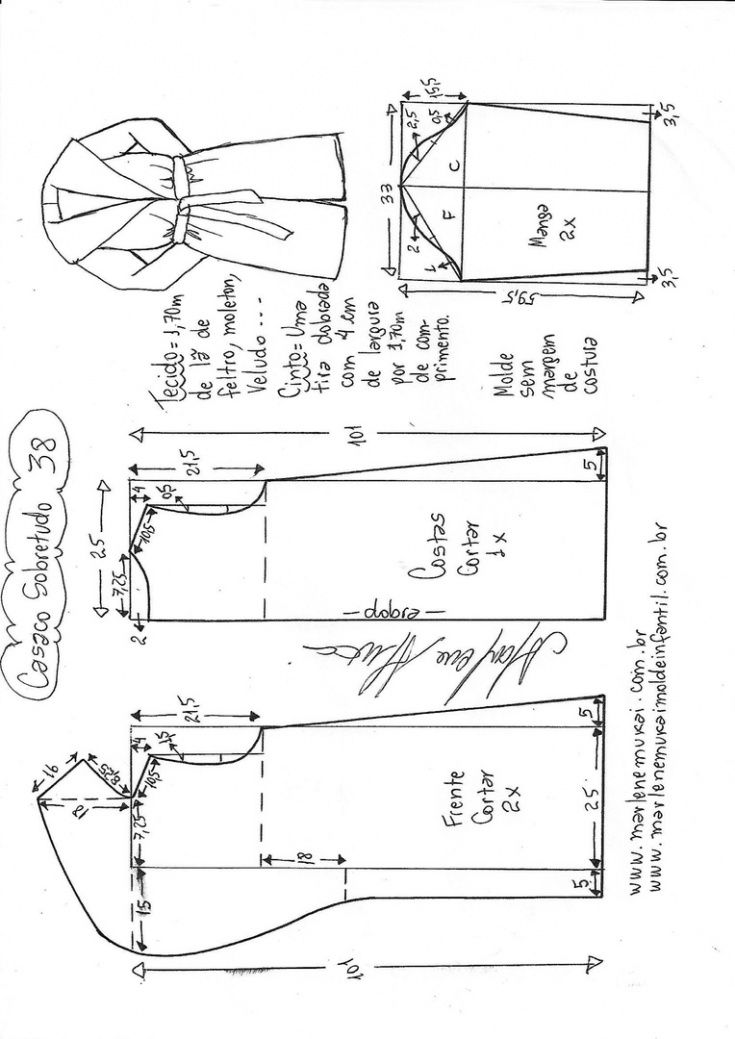 Casaco Sobretudo 38
Tecido = 1,70m
de lã de
feltro, moleton,
Veludo...
Cinto = Uma
tira dobrada
com 4 cm
de largura
por 1,70m
de com-
primento.
Molde
sem
margem
de
costura
33
15,5
2,5
0,5
C
F
2
1
Manga
2x
59,5
3,5
3,5
101
21,5
25
4
0,5
10,5
7,25
2
Costas
Cortar
1x
dobra
5
Marlene Mukai
16
8,25
18
21,5
4
1,5
10,5
7,25
15
18
Frente
Cortar
2x
5
25
5
101
www.marlenemukai.com.br
www.marlenemukaimoldeinfantil.com.br